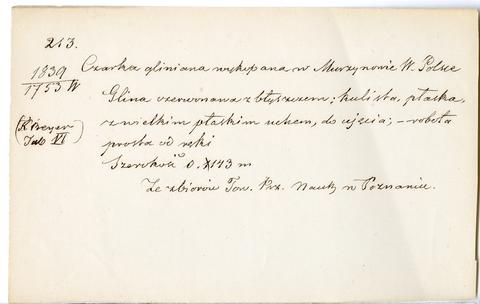 213.
1839
1753 W
Czarka gliniana wykopana w Murzynowie W. Polsce
Glina czerwonawa z błyszczem; kulista, płaska,
(K Beyer
Tab VI)
z wielkim płaskim uchem, do ujęcia; – robota
prosta od ręki
Szerokość 0.143 m
Ze zbiorów Tow. Prz. Nauk w Poznaniu.